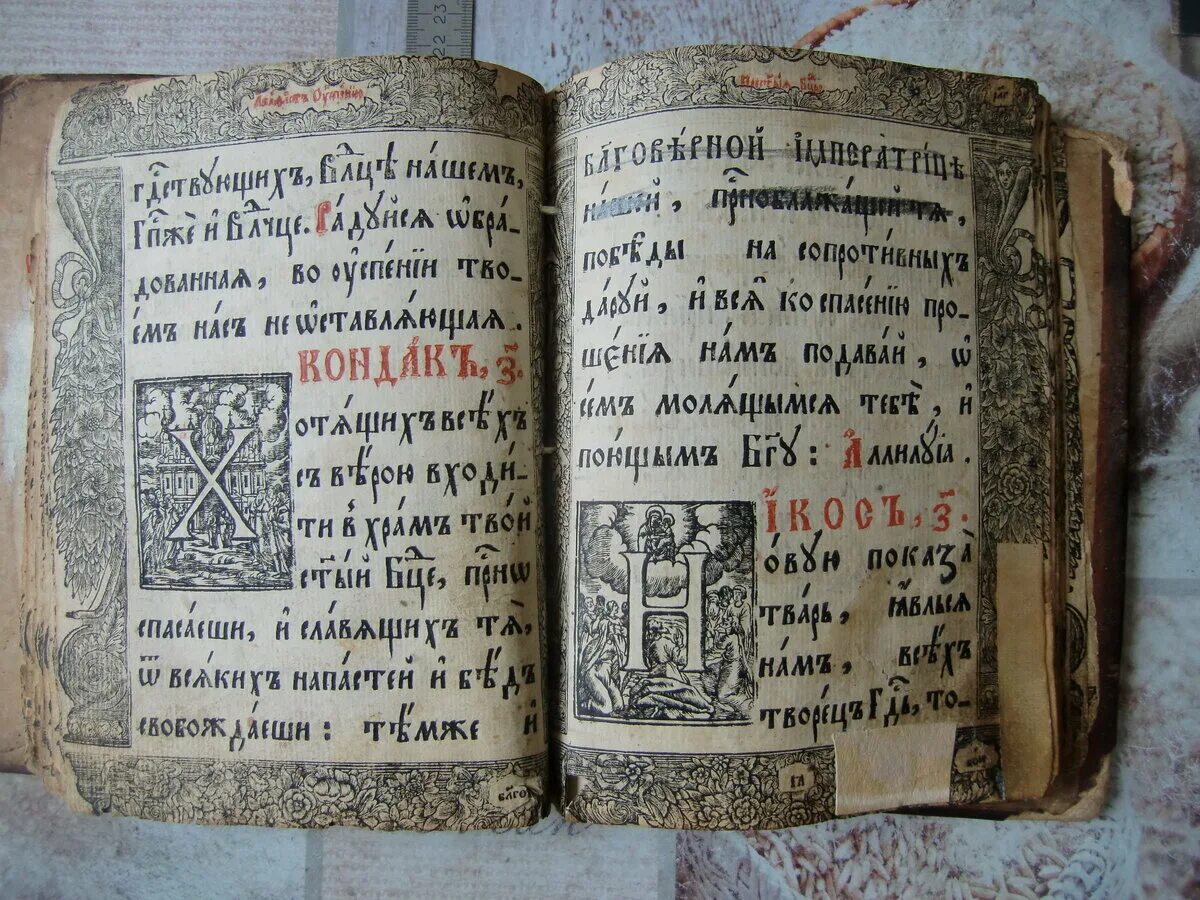 22 23
Акаѳистъ Оуспенїю
гдⷭ҇твующихъ, Влⷣцѣ на́шемъ,
Гпⷭ҇жѐ и҆ Влⷣчце. Ра́дуйся ѡ҆бра-
дованная, во оу҆спе́нїи тво-
е́мъ на́съ не ѡ҆ставля́ющая.
КОНДА́КЪ, з҃.
Хотя́щихъ всѣ́хъ
съ вѣ́рою входи́-
ти в̾ хра́мъ тво́й
ст҃ы́й Бцⷣе, при́сⷭ҇нѡ
спаса́еши, и҆ сла́вящихъ тя̀,
ѿ вся́кихъ напа́стей и҆ бѣ́дъ
свобожда́еши: тѣ́мже и҆
бл҃го
Прест҃ы́я Бцⷣы
бл҃говѣ́рной и҆мператри́цѣ
на́шей, при́снѡблажа́щей тя̀,
побѣ́ды на сопроти́вныхъ
да́руй, и҆ вся̑ ко спасе́нїю про-
ше́нїя на́мъ подава́й, ѡ҆
се́мъ моля́щымся тебѣ̀, и҆
пою́щымъ Бг҃у: А҆ллилу́їа.
І҆́КОСЪ, з҃.
Но́вую показа̀
тва́рь, ꙗ҆́влься
на́мъ, всѣ́хъ
творе́цъ Гдⷭ҇ь, то-
г҃і
кон